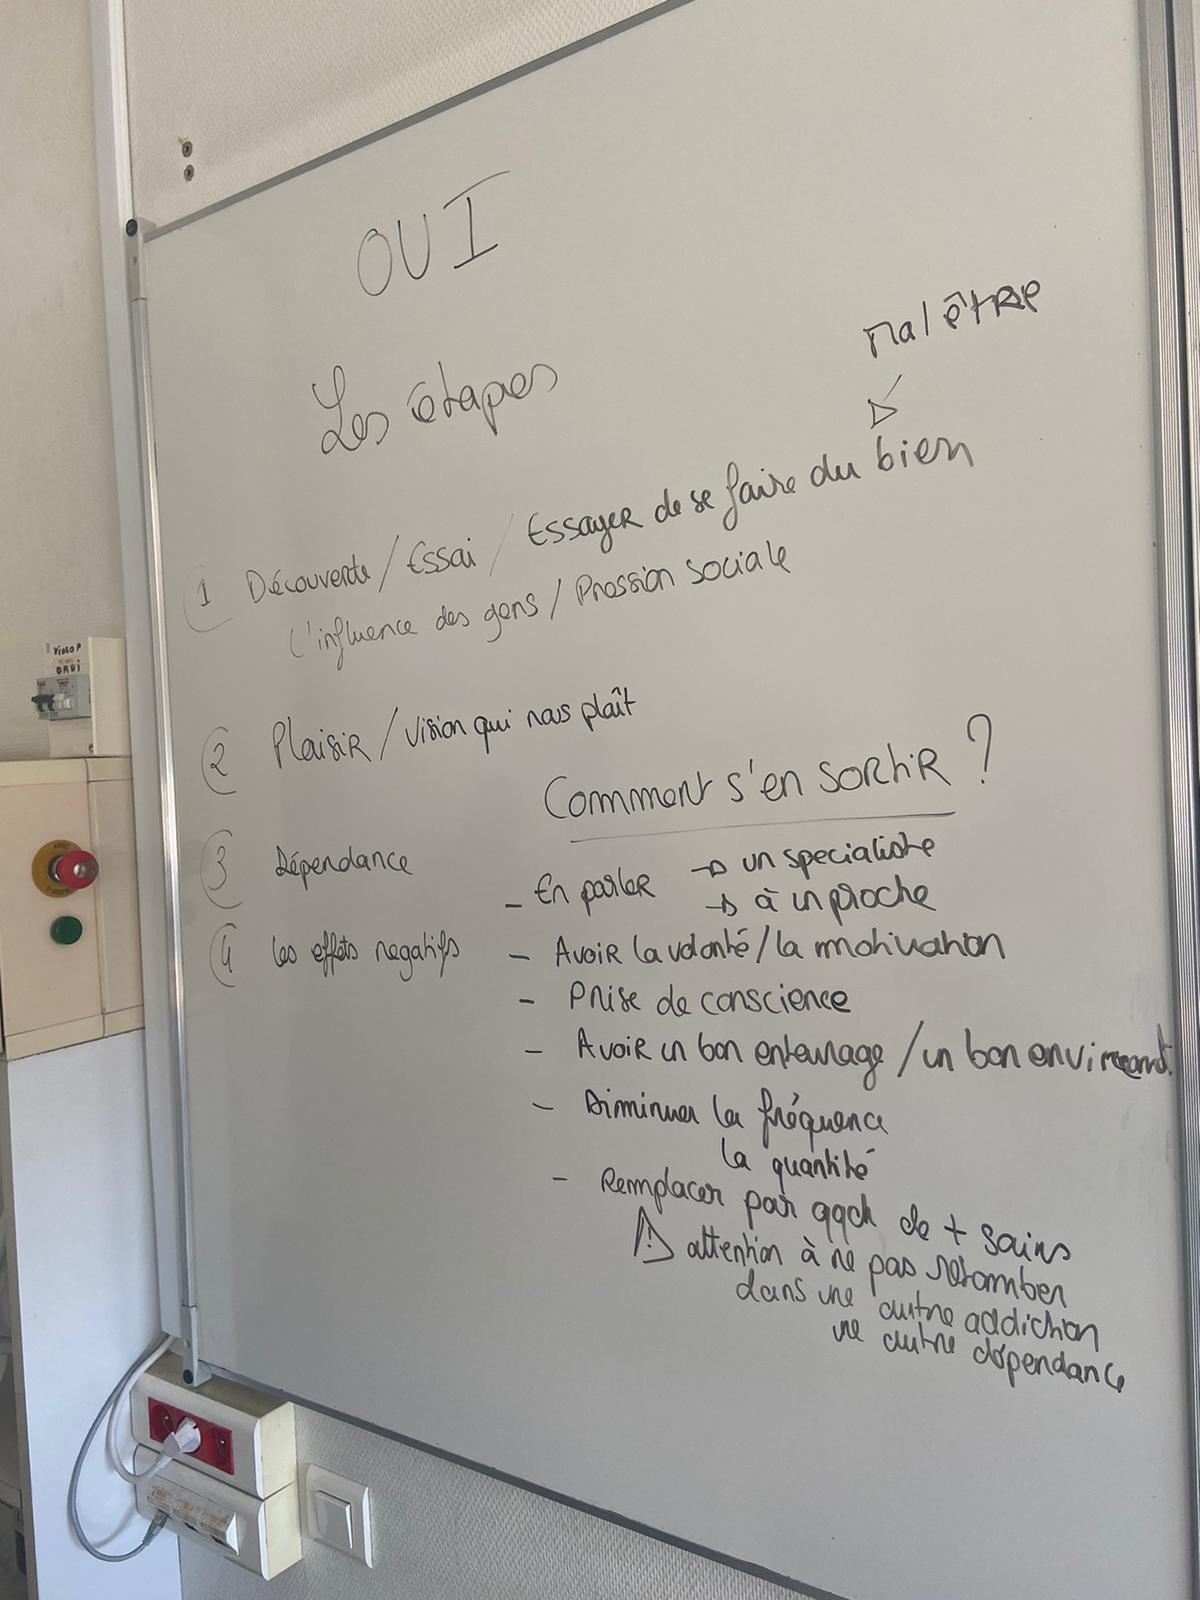 OUI
mal être
Les étapes
1 Découverte / Essai / Essayer de se faire du bien
L'influence des gens / Pression sociale
2 Plaisir / vision qui nous plaît
Comment s'en sortir ?
3 Dépendance
- En parler → un specialiste
→ à un proche
4 les effets negatifs
- Avoir la volonté / la motivation
- Prise de conscience
- Avoir un bon entourage / un bon
- Diminuer la fréquence
la quantité
- Remplacer par qqch de + sains
⚠ attention à ne pas retomber
dans une autre addiction
une autre dépendance
VIDEO P
ORDI
ARRET